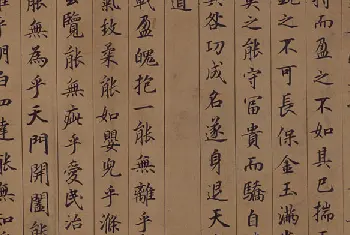 持而盈之不如其已揣
銳之不可長保金玉滿
莫之能守富貴而驕自
其咎功成名遂身退天
道
載盈魄抱一能無離乎
氣致柔能如嬰兒乎滌
玄覽能無疵乎愛民治
能無為乎天門開闔能
乎明白四達能無知